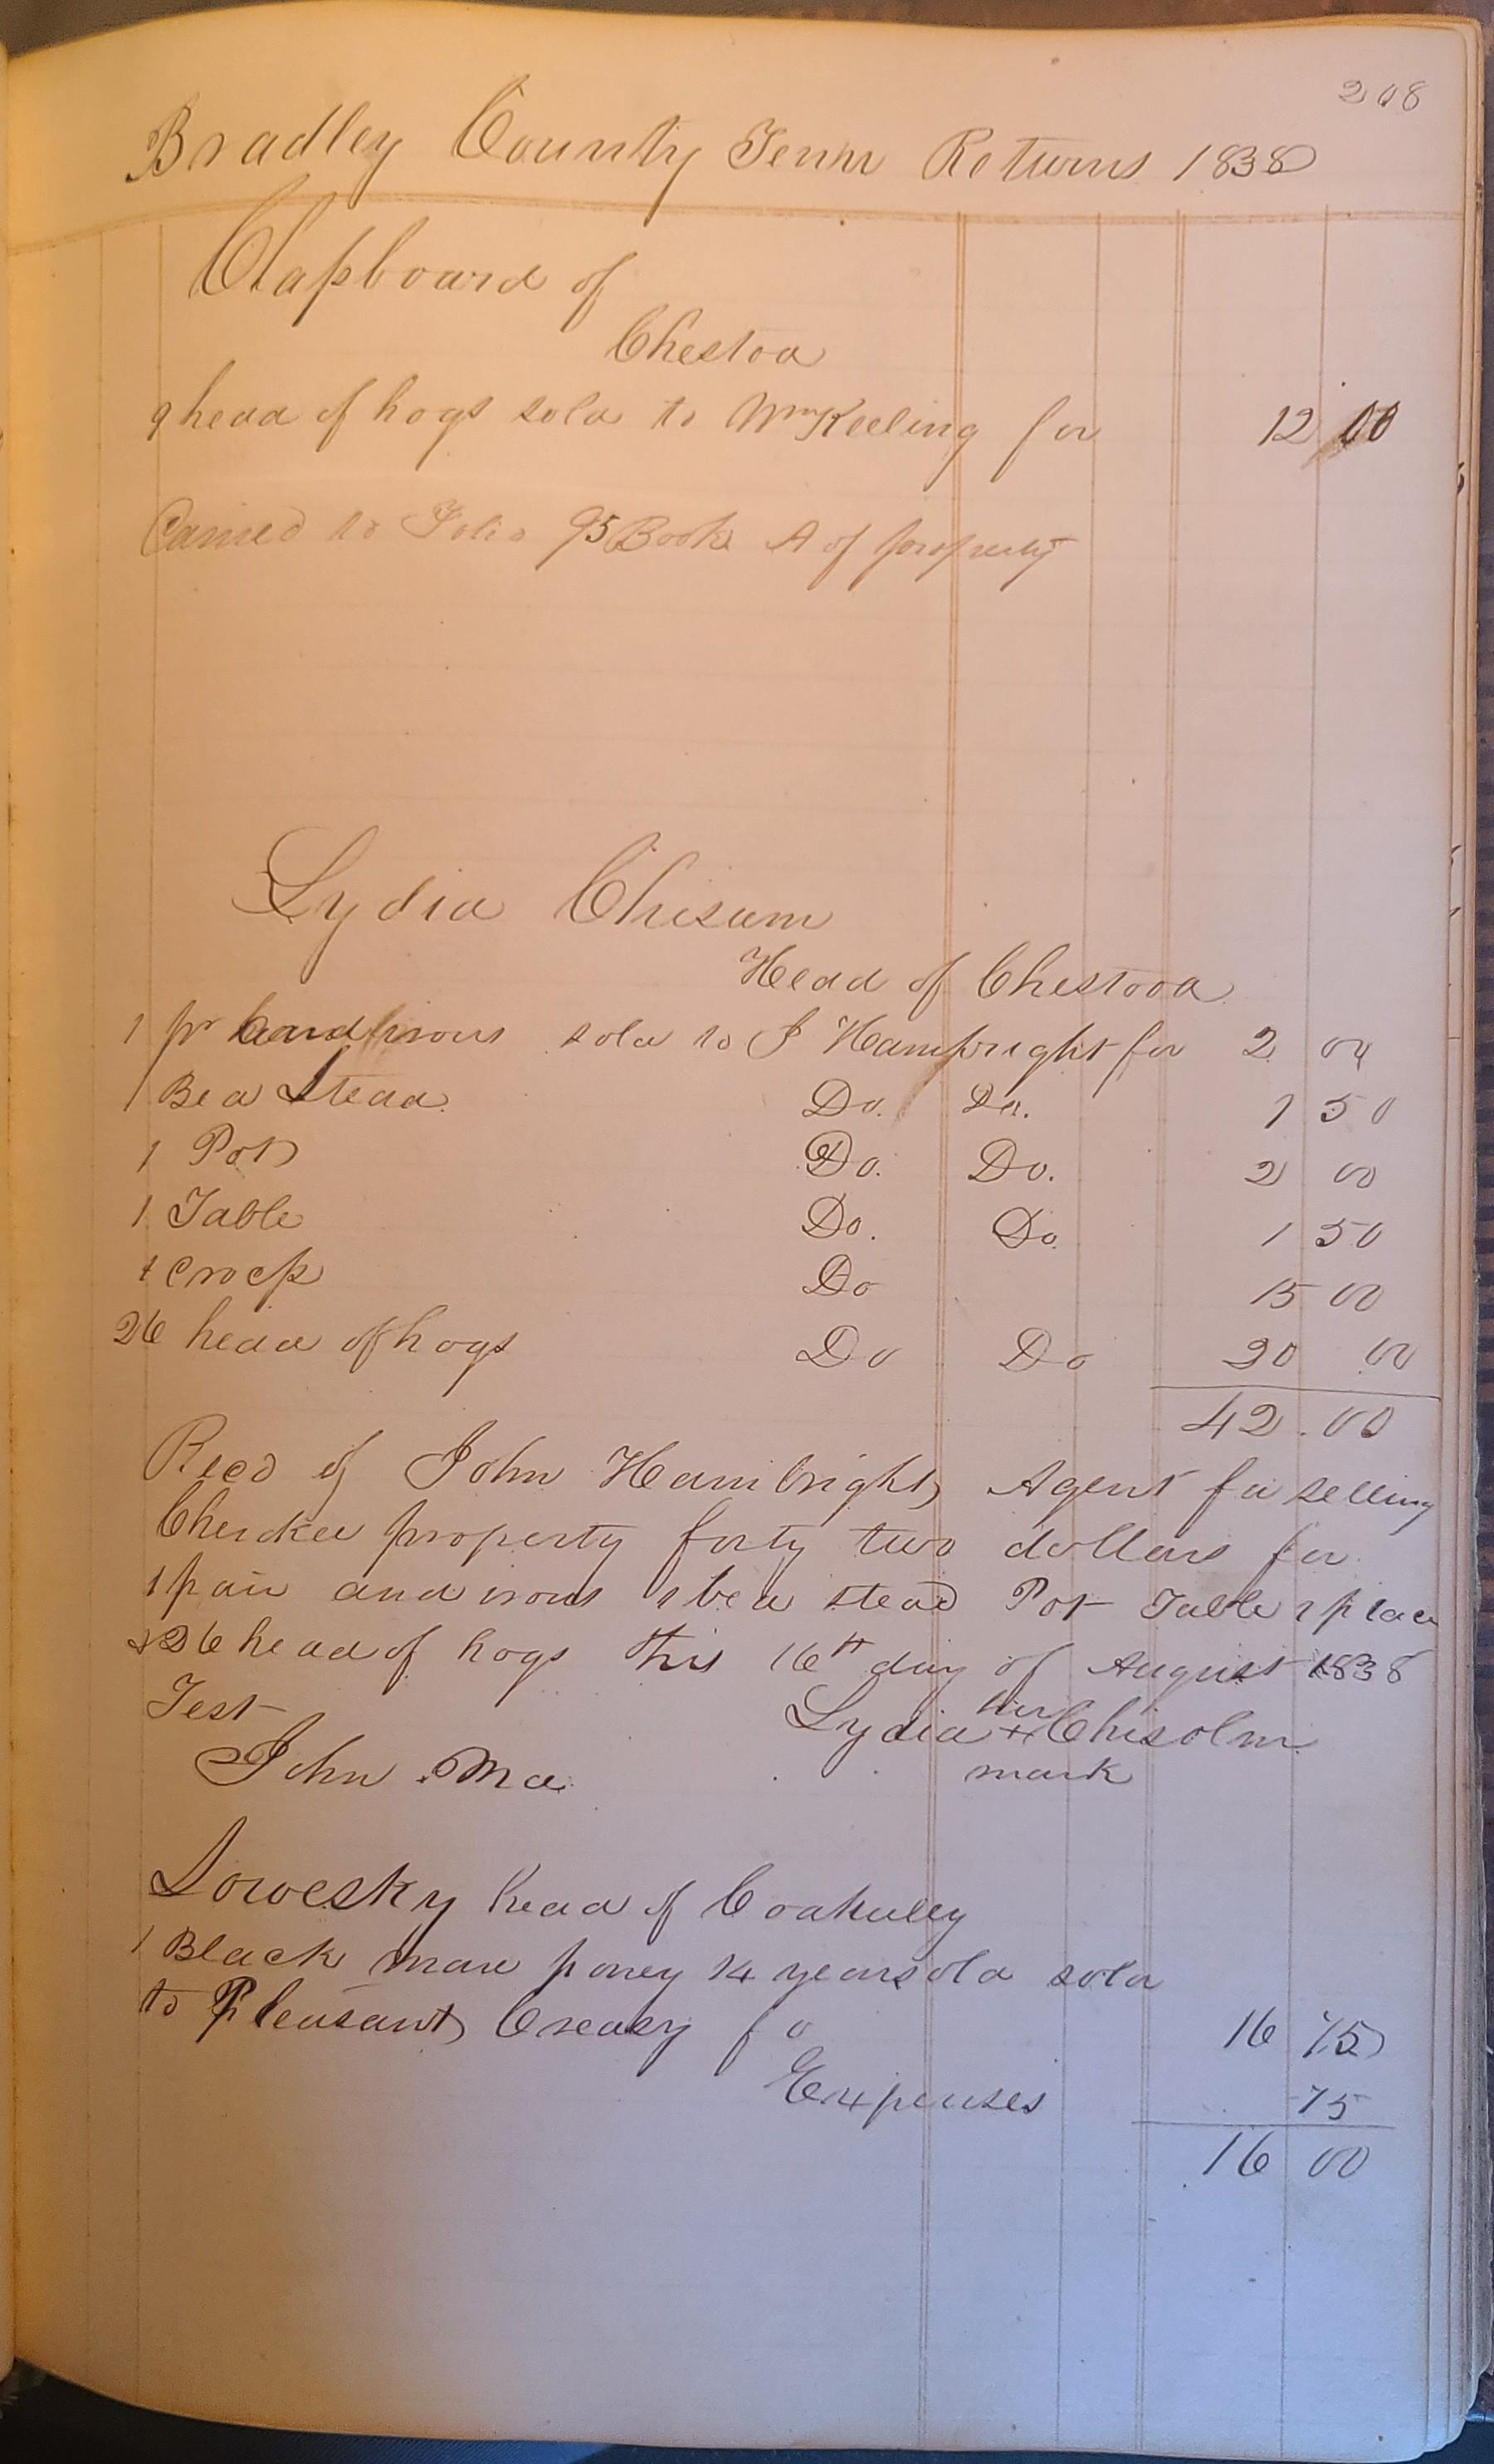 208
Bradley County Tenn Returns 1838
Clapboard of
Chestoa
9 head of hogs sold to Wm Keeling for 12 00
Carried to Folio 95 Book A of property
Lydia Chisum
Head of Chestooa
1 pr handirons sold to J Hambright for 2 00
1 Bed Stead Do. Do. 1 50
1 Pot Do. Do. 2 00
1 Table Do. Do. 1 50
1 Crop Do 15 00
26 head of hogs Do Do 20 00
42.00
Recd of John Hambright Agent for selling
Cherokee property forty two dollars for
1 pair and irons 1 bed stead Pot Table 1 place
& 26 head of hogs this 16th day of August 1838
Test Lydia her + Chisolm
John Ma mark
Sowesky head of Coahulley
1 Black mare poney 14 years old sold
to Pleasant Creasy fo 16 75
Expenses 75
16 00